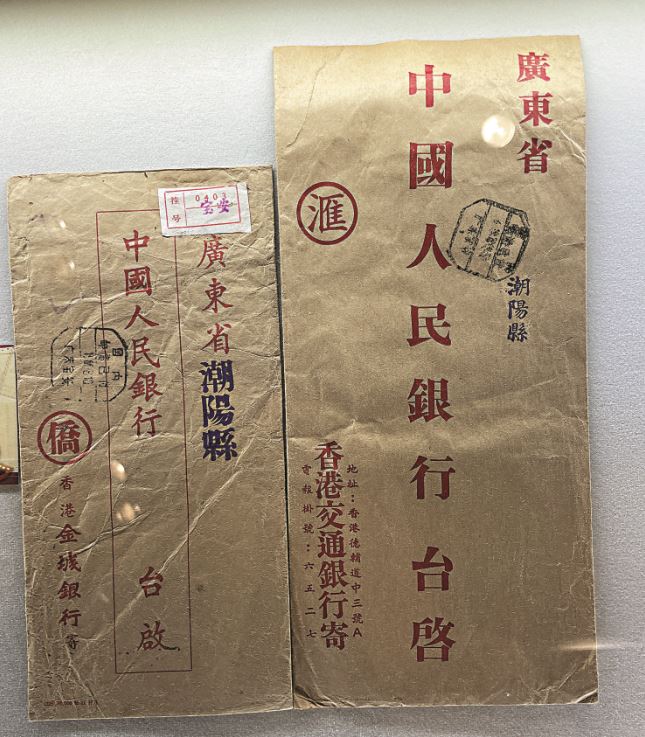 廣東省
潮陽縣
中國人民銀行台啓
滙
地址：香港德輔道中三號A
香港交通銀行寄
電報掛號：六五二七
挂号
0403
宝安
廣東省
潮陽縣
中國人民銀行 台啟
僑
香港金城銀行寄